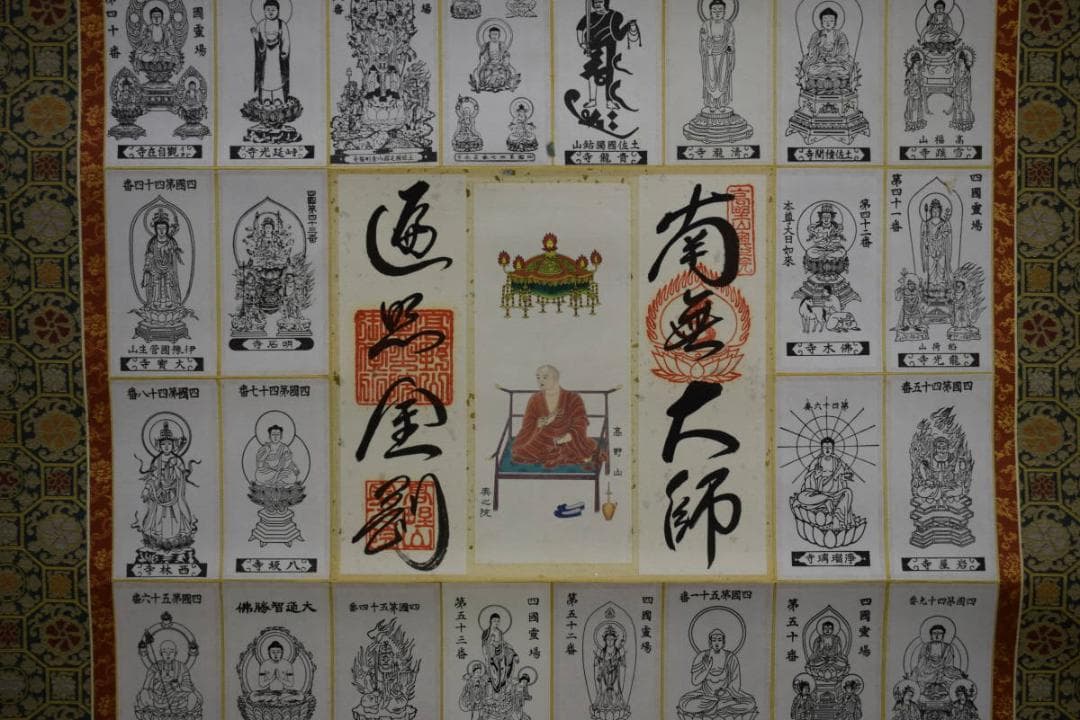 高福山
雪蹊寺
土佐種間寺
清瀧寺
土佐國獨鈷山
青龍寺
延光寺
四國靈場
第四十番
觀自在寺
四國靈場
第四十一番
稻荷山
龍光寺
第四十二番
本尊大日如來
佛木寺
南無大師
高野山
奥之院
遍照金剛
四國第四十三番
明石寺
四國第四十四番
伊豫國菅生山
大寶寺
四國第四十五番
岩屋寺
第四十六番
淨瑠璃寺
四國第四十七番
八坂寺
四國第四十八番
西林寺
四國第四十九番
四國靈場
第五十番
四國第五十一番
四國靈場
第五十二番
四國靈場
第五十三番
四國第五十四番
大通智勝佛
四國第五十六番